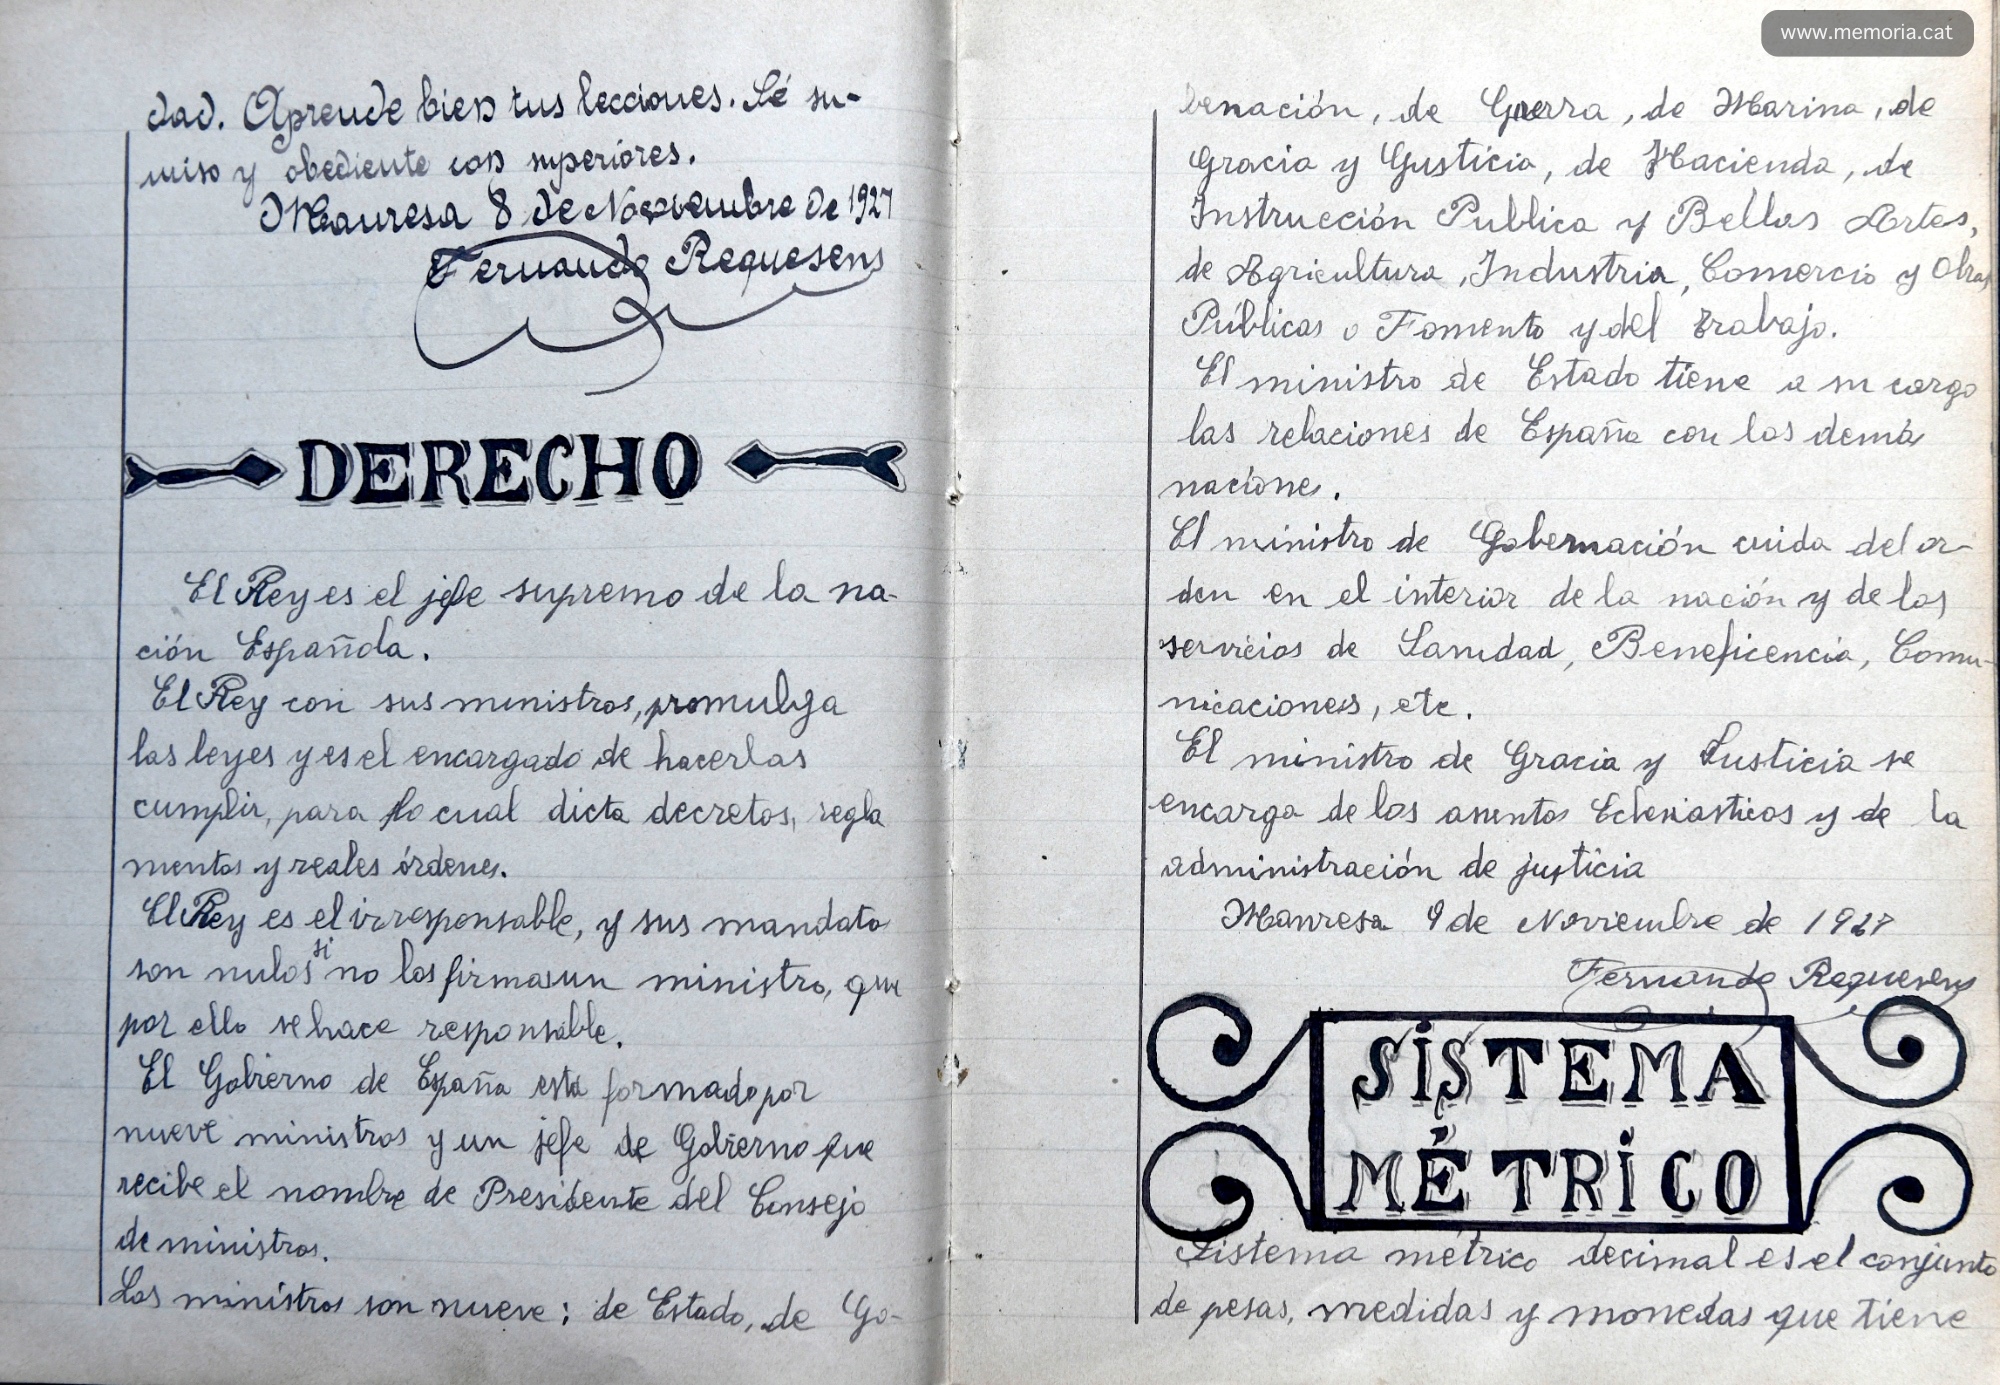 www.memoria.cat
dad. Aprende bien tus lecciones. Sé su-
miso y obediente con superiores.
Manresa 8 de Noviembre de 1927
Fernando Requesens
DERECHO
El Rey es el jefe supremo de la na-
ción Española.
El Rey con sus ministros, promulga
las leyes y es el encargado de hacerlas
cumplir, para lo cual dicta decretos, regla
mentos y reales órdenes.
El Rey es el irresponsable, y sus mandatos
son nulos si no los firmas un ministro, que
por ello se hace responsable.
El Gobierno de España está formado por
nueve ministros y un jefe de Gobierno que
recibe el nombre de Presidente del Consejo
de ministros.
Los ministros son nueve: de Estado, de Go-
benación, de Guerra, de Marina, de
Gracia y Gusticia, de Hacienda, de
Instrucción Publica y Bellas Artes,
de Agricultura, Industria, Comercio y Obras
Públicas o Fomento y del trabajo.
El ministro de Estado tiene a su cargo
las relaciones de España con las demás
naciones.
El ministro de Gobernación cuida del or-
den en el interior de la nación y de los
servicios de Sanidad, Beneficencia, Comu-
nicaciones, etc.
El ministro de Gracia y Justicia se
encarga de los asuntos Eclesiasticos y de la
administración de justicia
Manresa 9 de Noviembre de 1927
Fernando Requesens
SISTEMA
MÉTRICO
Sistema métrico decimal es el conjunto
de pesas, medidas y monedas que tiene